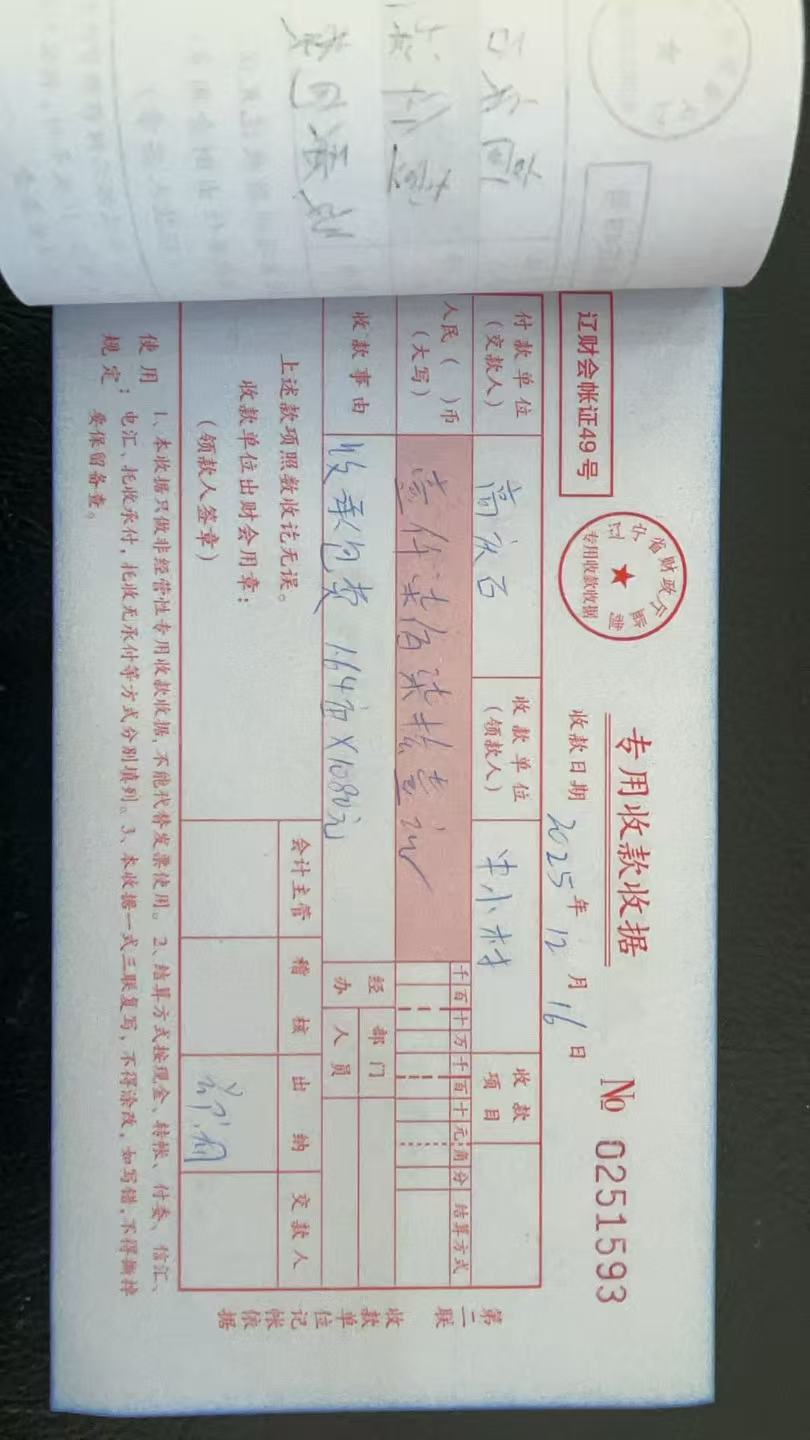 专用收款收据
№ 0251593
辽财会帐证49号
专用收款收据
收款日期 2025 年 12 月 16 日
付款单位
(交款人)
收款单位
(领款人)
收款
项目
人民( )币
(大写)
壹仟柒佰柒拾壹元
千 百 十 万 千 百 十 元 角 分
结算方式
收款事由
收承包费 1.64亩×1080元
经办
部门
人员
上述款项照数收讫无误。
收款单位出财会用章:
(领款人签章)
会计主管
稽核
出纳
交款人
第二联
收款单位记帐依据
使用规定:
1、本收据只做非经营性专用收款收据,不能代替发票使用。2、结算方式按现金、转帐、付委、信汇、
电汇、托收承付,托收无承付等方式分别填列。3、本收据一式三联复写,不得涂改,如写错,不得撕掉
要保留备查。